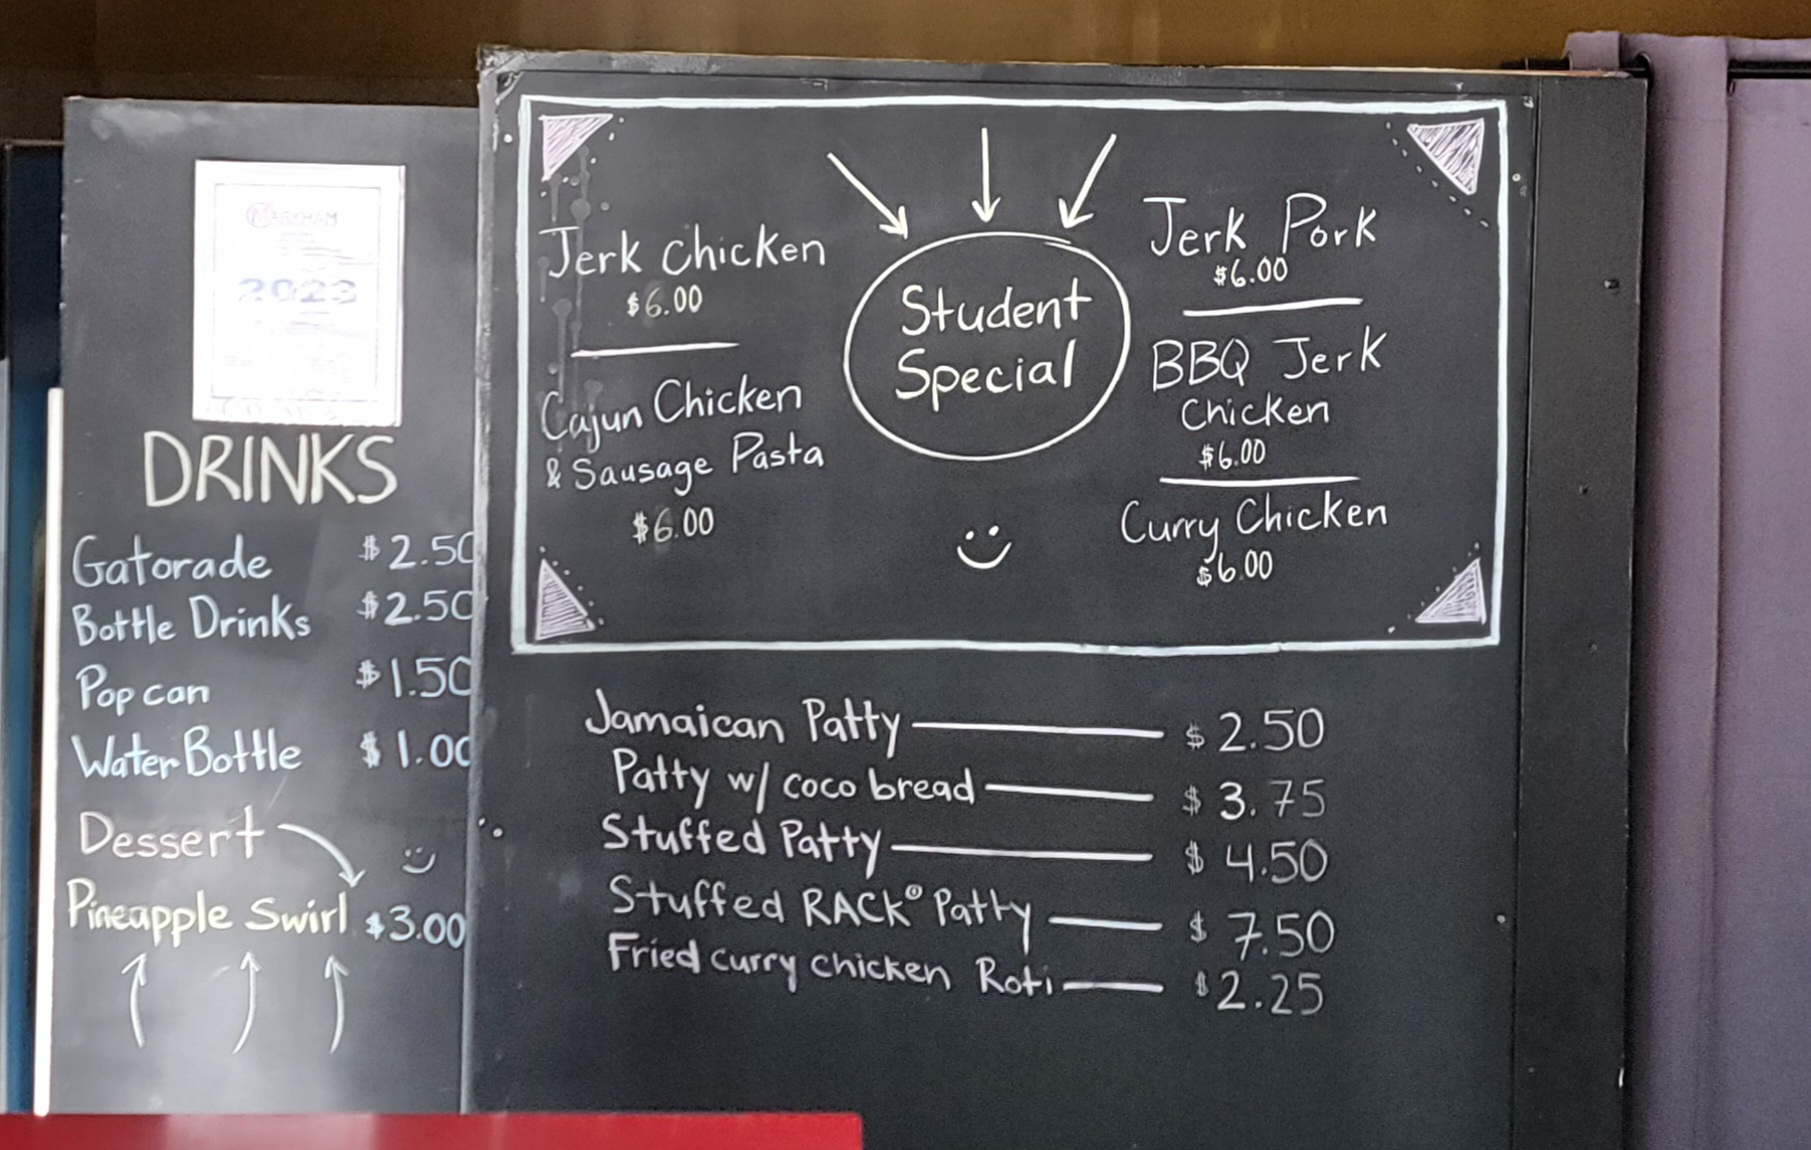 MARKHAM
2023
DRINKS
Gatorade $2.50
Bottle Drinks $2.50
Pop can $1.50
Water Bottle $1.00
Dessert
Pineapple Swirl $3.00
Student
Special
Jerk Chicken
$6.00
Cajun Chicken
& Sausage Pasta
$6.00
Jerk Pork
$6.00
BBQ Jerk
Chicken
$6.00
Curry Chicken
$6.00
Jamaican Patty $2.50
Patty w/ coco bread $3.75
Stuffed Patty $4.50
Stuffed RACK® Patty $7.50
Fried curry chicken Roti $2.25